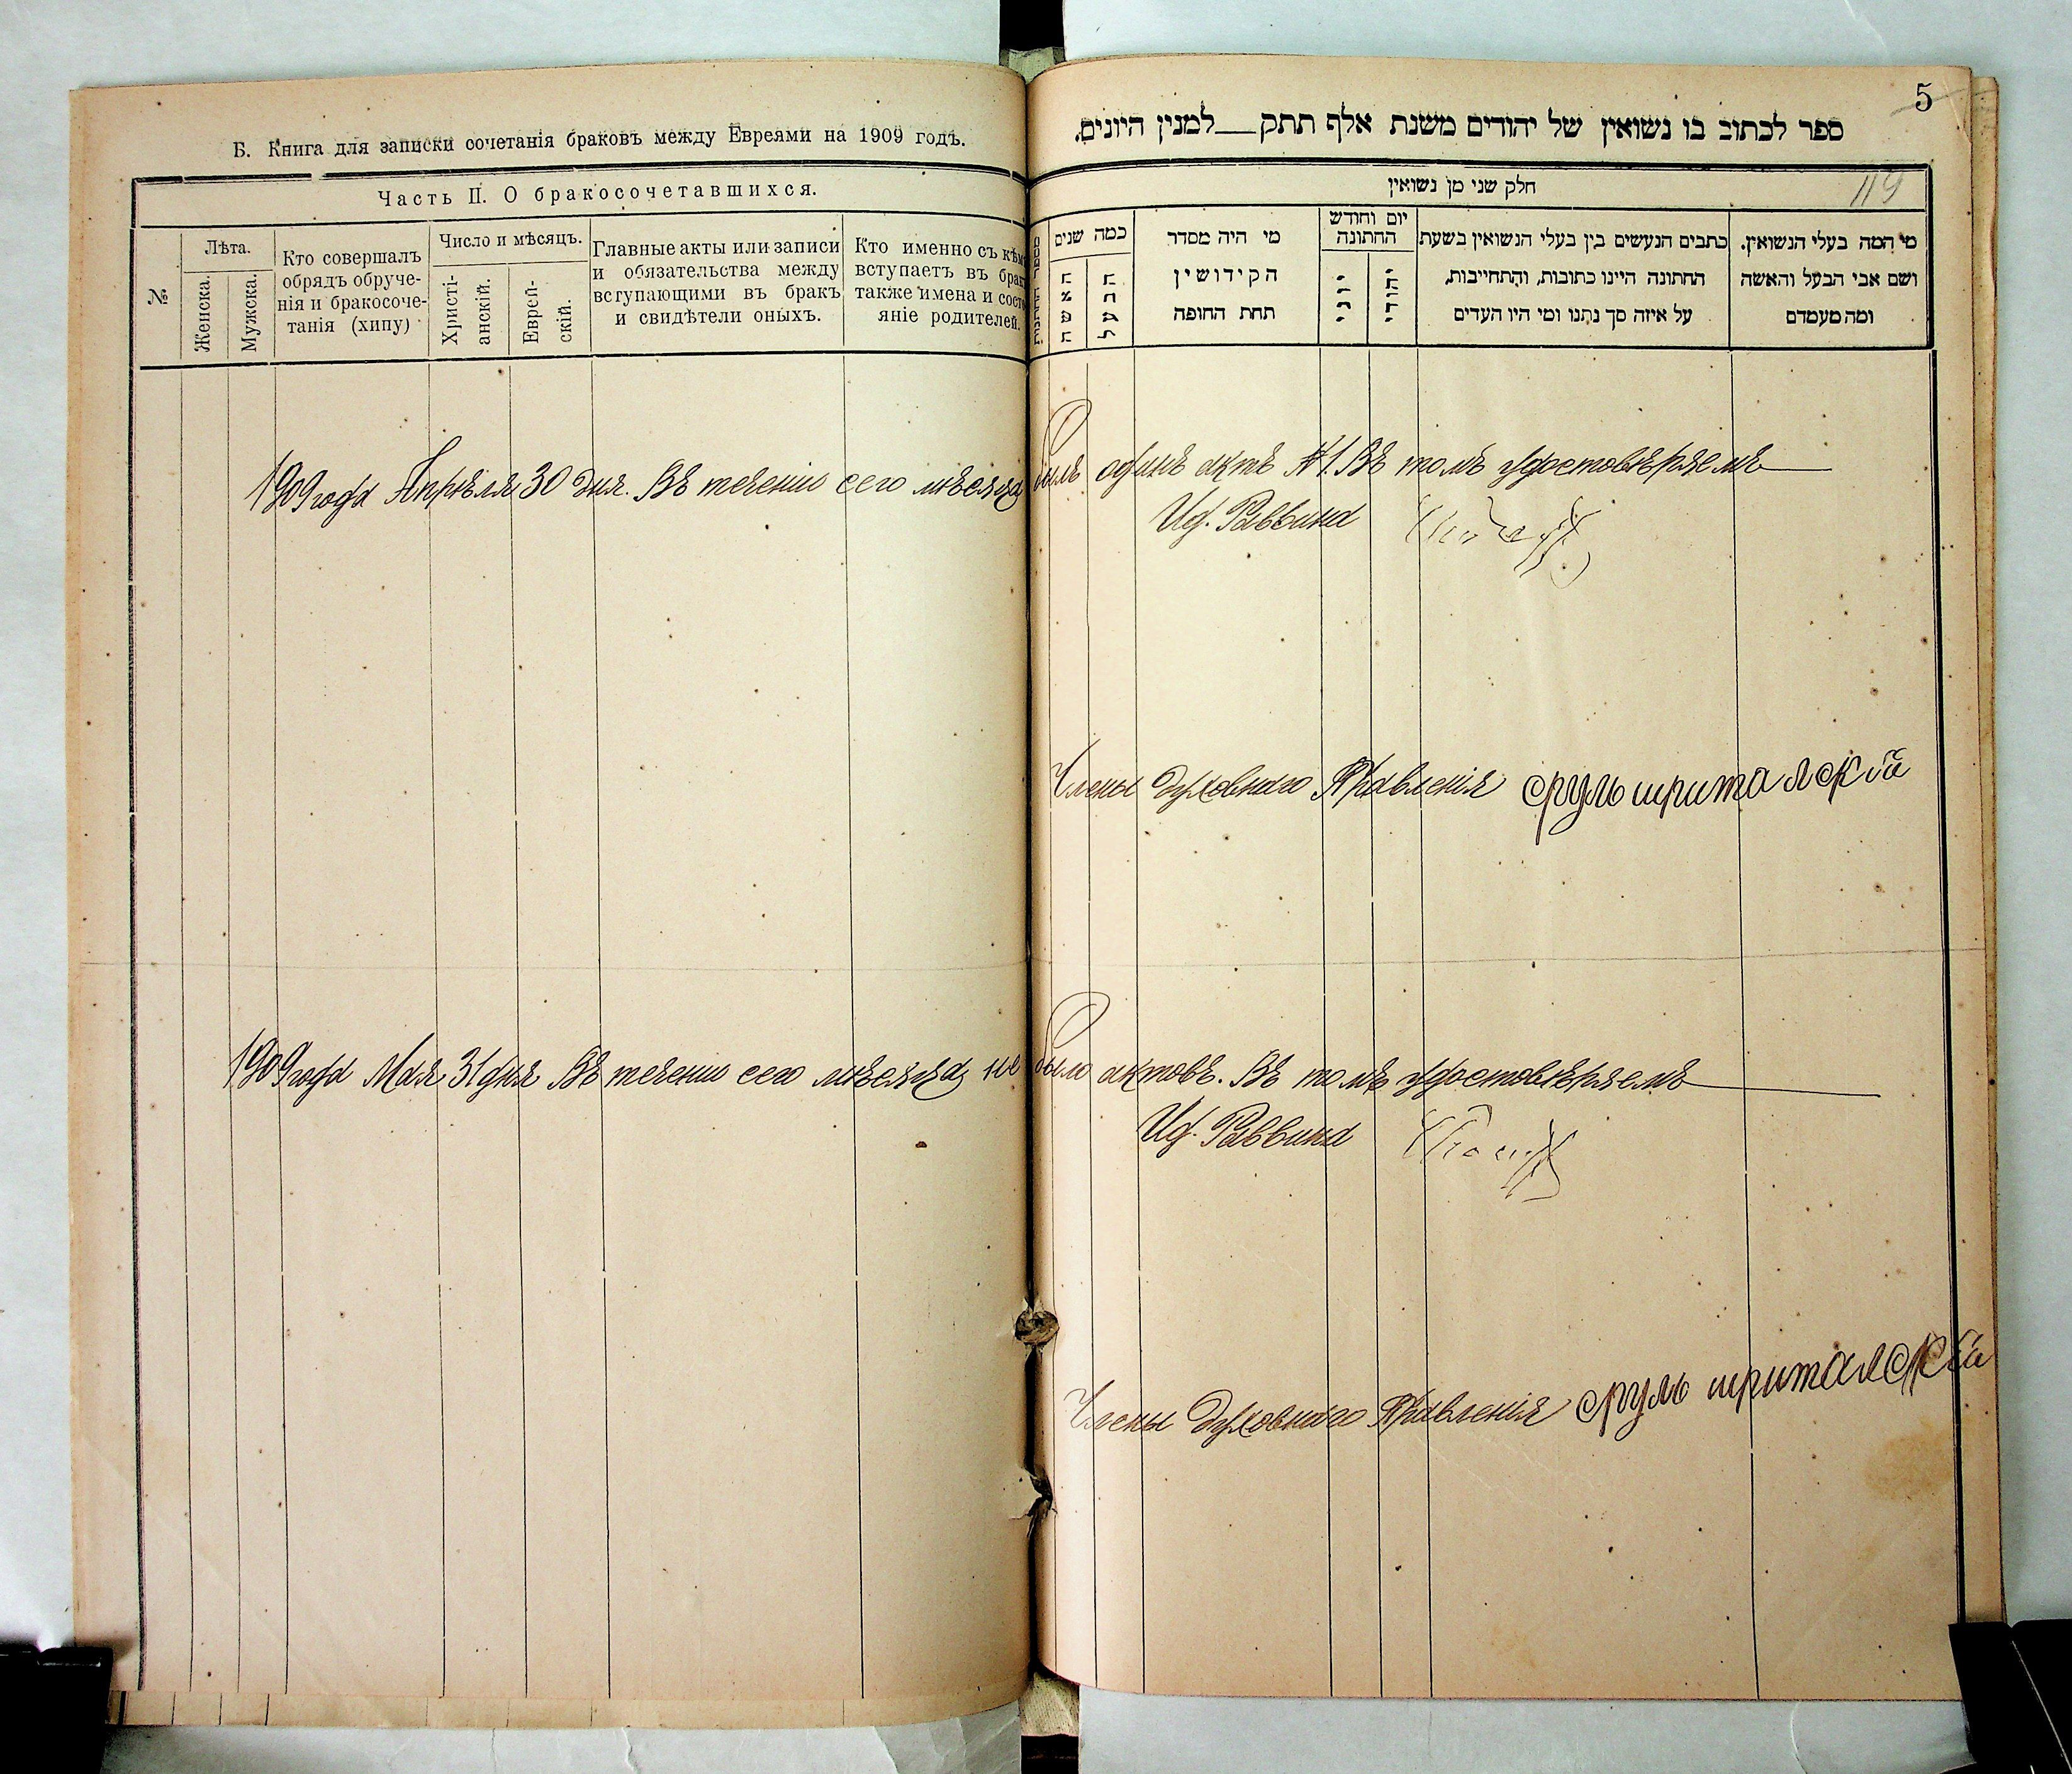 Б. Книга для записки сочетанія браковъ между Евреями на 1909 годъ.
Часть II. О бракосочетавшихся.
№
Лѣта.
Женска.
Мужска.
Кто совершалъ
обрядъ обруче-
нія и бракосоче-
танія (хипу)
Число и мѣсяцъ.
Христі-
анскій.
Еврей-
скій.
Главные акты или записи
и обязательства между
вступающими въ бракъ
и свидѣтели оныхъ.
Кто именно съ кѣм
вступаетъ въ брак
также имена и состо
яніе родителей.
5
ספר לכתוב בו נשואין של יהודים משנת אלף תתק__למנין היונים.
119
חלק שני מן נשואין
כמה שנים
האשה
הבעל
מי היה מסדר
הקידושין
תחת החופה
יום וחודש
החתונה
יוני
יהודי
כתבים הנעשים בין בעלי הנשואין בשעת
החתונה היינו כתובות, והתחייבות,
על איזה סך נתנו ומי היו העדים
מי המה בעלי הנשואין.
ושם אבי הבעל והאשה
ומה מעמדם
1909 года Апрѣля 30 дня. Въ теченіи сего мѣсяца былъ одинъ актъ №1. Въ томъ удостовѣряемъ
Ид. Раввина
Члены Духовнаго Правленія сруль
1909 года Мая 31 дня Въ теченіи сего мѣсяца не было актовъ. Въ томъ удостовѣряемъ
Ид. Раввина
Члены Духовнаго Правленія сруль